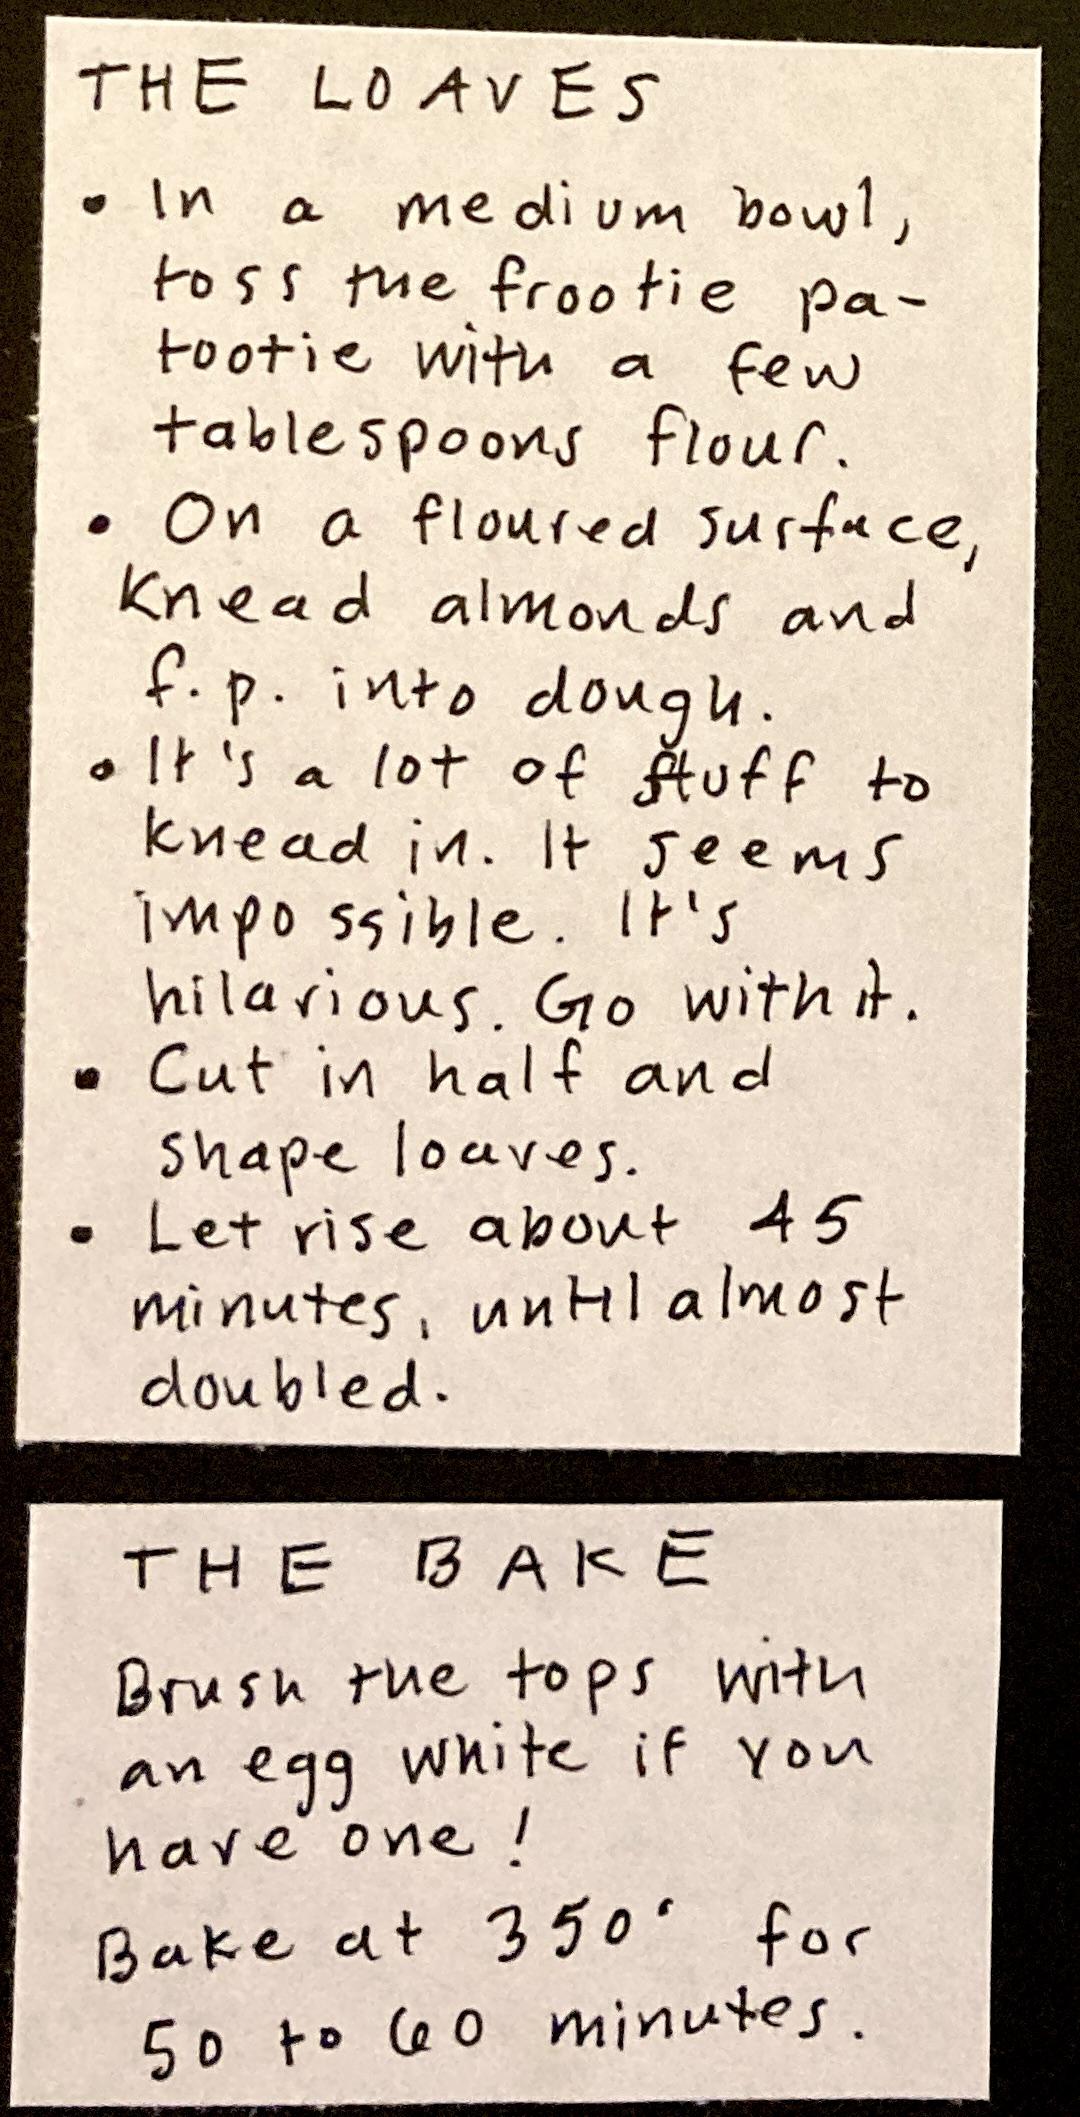 THE LOAVES
• In a medium bowl,
toss the frootie pa-
tootie with a few
tablespoons flour.
• On a floured surface,
knead almonds and
f.p. into dough.
• It's a lot of stuff to
knead in. It seems
impossible. It's
hilarious. Go with it.
• Cut in half and
shape loaves.
• Let rise about 45
minutes, until almost
doubled.
THE BAKE
Brush the tops with
an egg white if you
have one!
Bake at 350° for
50 to 60 minutes.